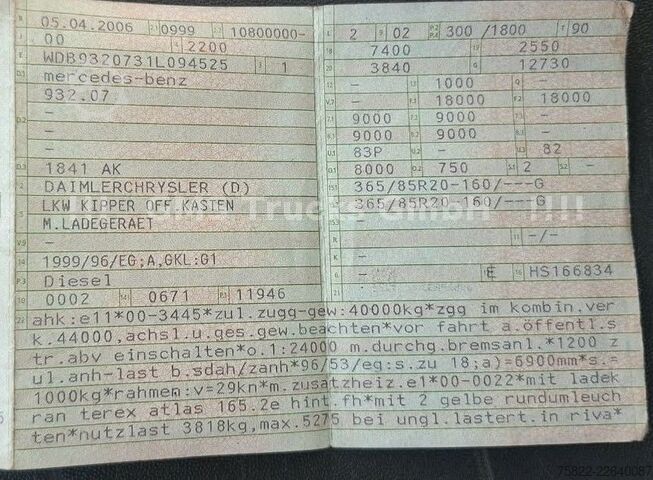 B 05.04.2006 2.1 0999 2.2 10800000-
J 00 4 2200
E WDB9320731L094525 3 1
D.1 mercedes-benz
932.07
D.2 -
-
-
D.3 1841 AK
2 DAIMLERCHRYSLER (D)
5 LKW KIPPER OFF.KASTEN
M.LADEGERAET
V.9 -
14 1999/96/EG;A,GKL:G1
P.3 Diesel
10 0002 14.1 0671 P.1 11946
L 2 9 02 P.2 P.4 300 /1800 T 90
18 7400 19 2550
20 3840 G 12730
12 - 13 1000 Q -
V.7 - F.1 18000 F.2 18000
7.1 9000 7.2 9000 7.3 -
8.1 9000 8.2 9000 8.3 -
U.1 83P U.2 - U.3 82
O.1 8000 O.2 750 S.1 2 S.2 -
15.1 365/85R20-160/---G
15.2 365/85R20-160/---G
15.3 -
R - 11 -/-
K -
6 - 17 E 16 HS166834
21
22 ahk:e11*00-3445*zul.zugg-gew:40000kg*zgg im kombin.ver
k.44000,achsl.u.ges.gew.beachten*vor fahrt a.öffentl.s
tr.abv einschalten*o.1:24000 m.durchg.bremsanl.*1200 z
ul.anh-last b.sdah/zanh*96/53/eg:s.zu 18;a)=6900mm*s.=
1000kg*rahmen:v=29kn*m.zusatzheiz.e1*00-0022*mit ladek
ran terex atlas 165.2e hint.fh*mit 2 gelbe rundumleuch
ten*nutzlast 3818kg,max.5275 bei ungl.lastert.in riva*
Trucks GmbH !!!!
75822-22640087